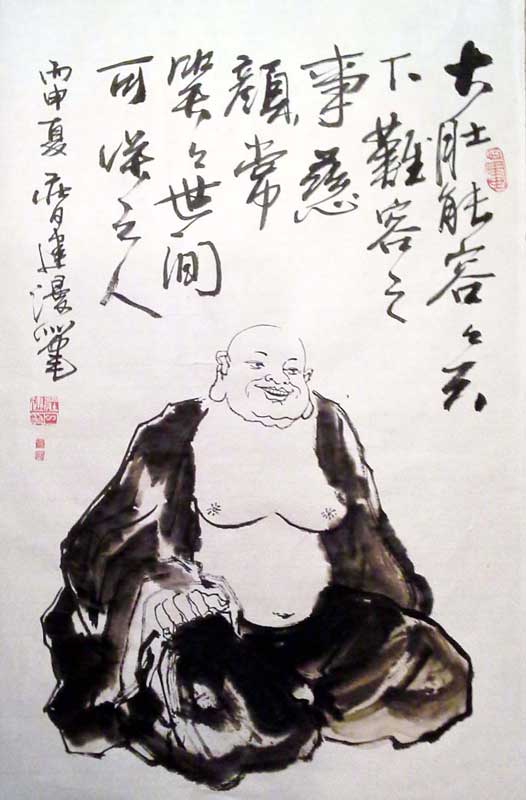 大肚能容々天
下難容之
事慈
顔常
笑々世间
可笑之人
丙申夏 建漫筆